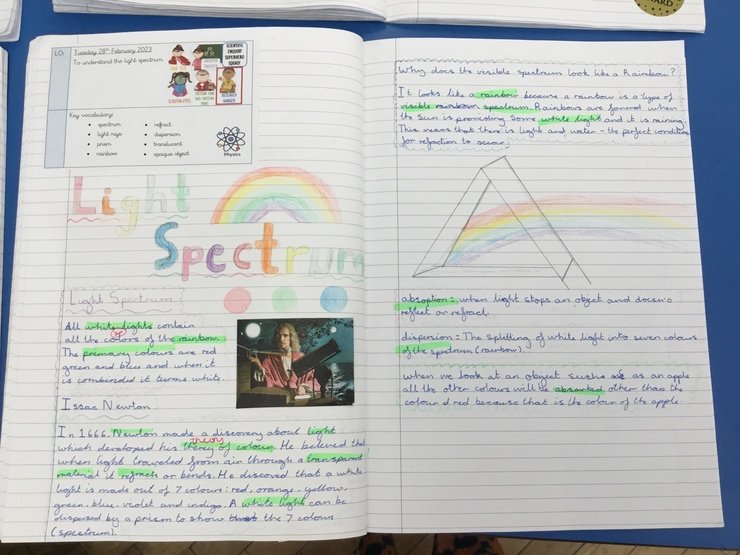 LO:
Tuesday 28th February 2023
To understand the light spectrum.
SCIENTIFIC
ENQUIRY
SUPERHERO
SQUAD
Key vocabulary:
spectrum
light-rays
prism
rainbow
refract
dispersion
translucent
opaque object
Physics
Light
Spectrum
Light Spectrum
All white lights contain
sp
all the colors of the rainbow.
The premary colours are red
green and blue and when it
is combinded it turns white.
Issac Newton
In 1666, Newton made a discovery about light
theory
which developed his therey of colour. He beleved that
when light traweled from air through a transparent
material it refracts or bends. He discoved that a white
light is made out of 7 colours: red, orange, yellow,
green, blue, violet and indigo. A white light can be
dispersed by a prism to show the 7 colours
(spectrum).
Why does the visible spectrum look like a Rainbow?
It looks like a rainbow because a rainbow is a type of
visible rainbown spectrum. Rainbows are formed when
the sun is providing some white light and it is raining.
This means that there is light and water - the perfect condition
for refraction to occur.
absoption: when light stops an object and doesn't
reflect or refract.
dispersion: The splitting of white light into seven colours
of the spectrum (rainbow).
when we look at an object as an apple
all the other colours will be absorbed other than the
colour d red because that is the colour of the apple.